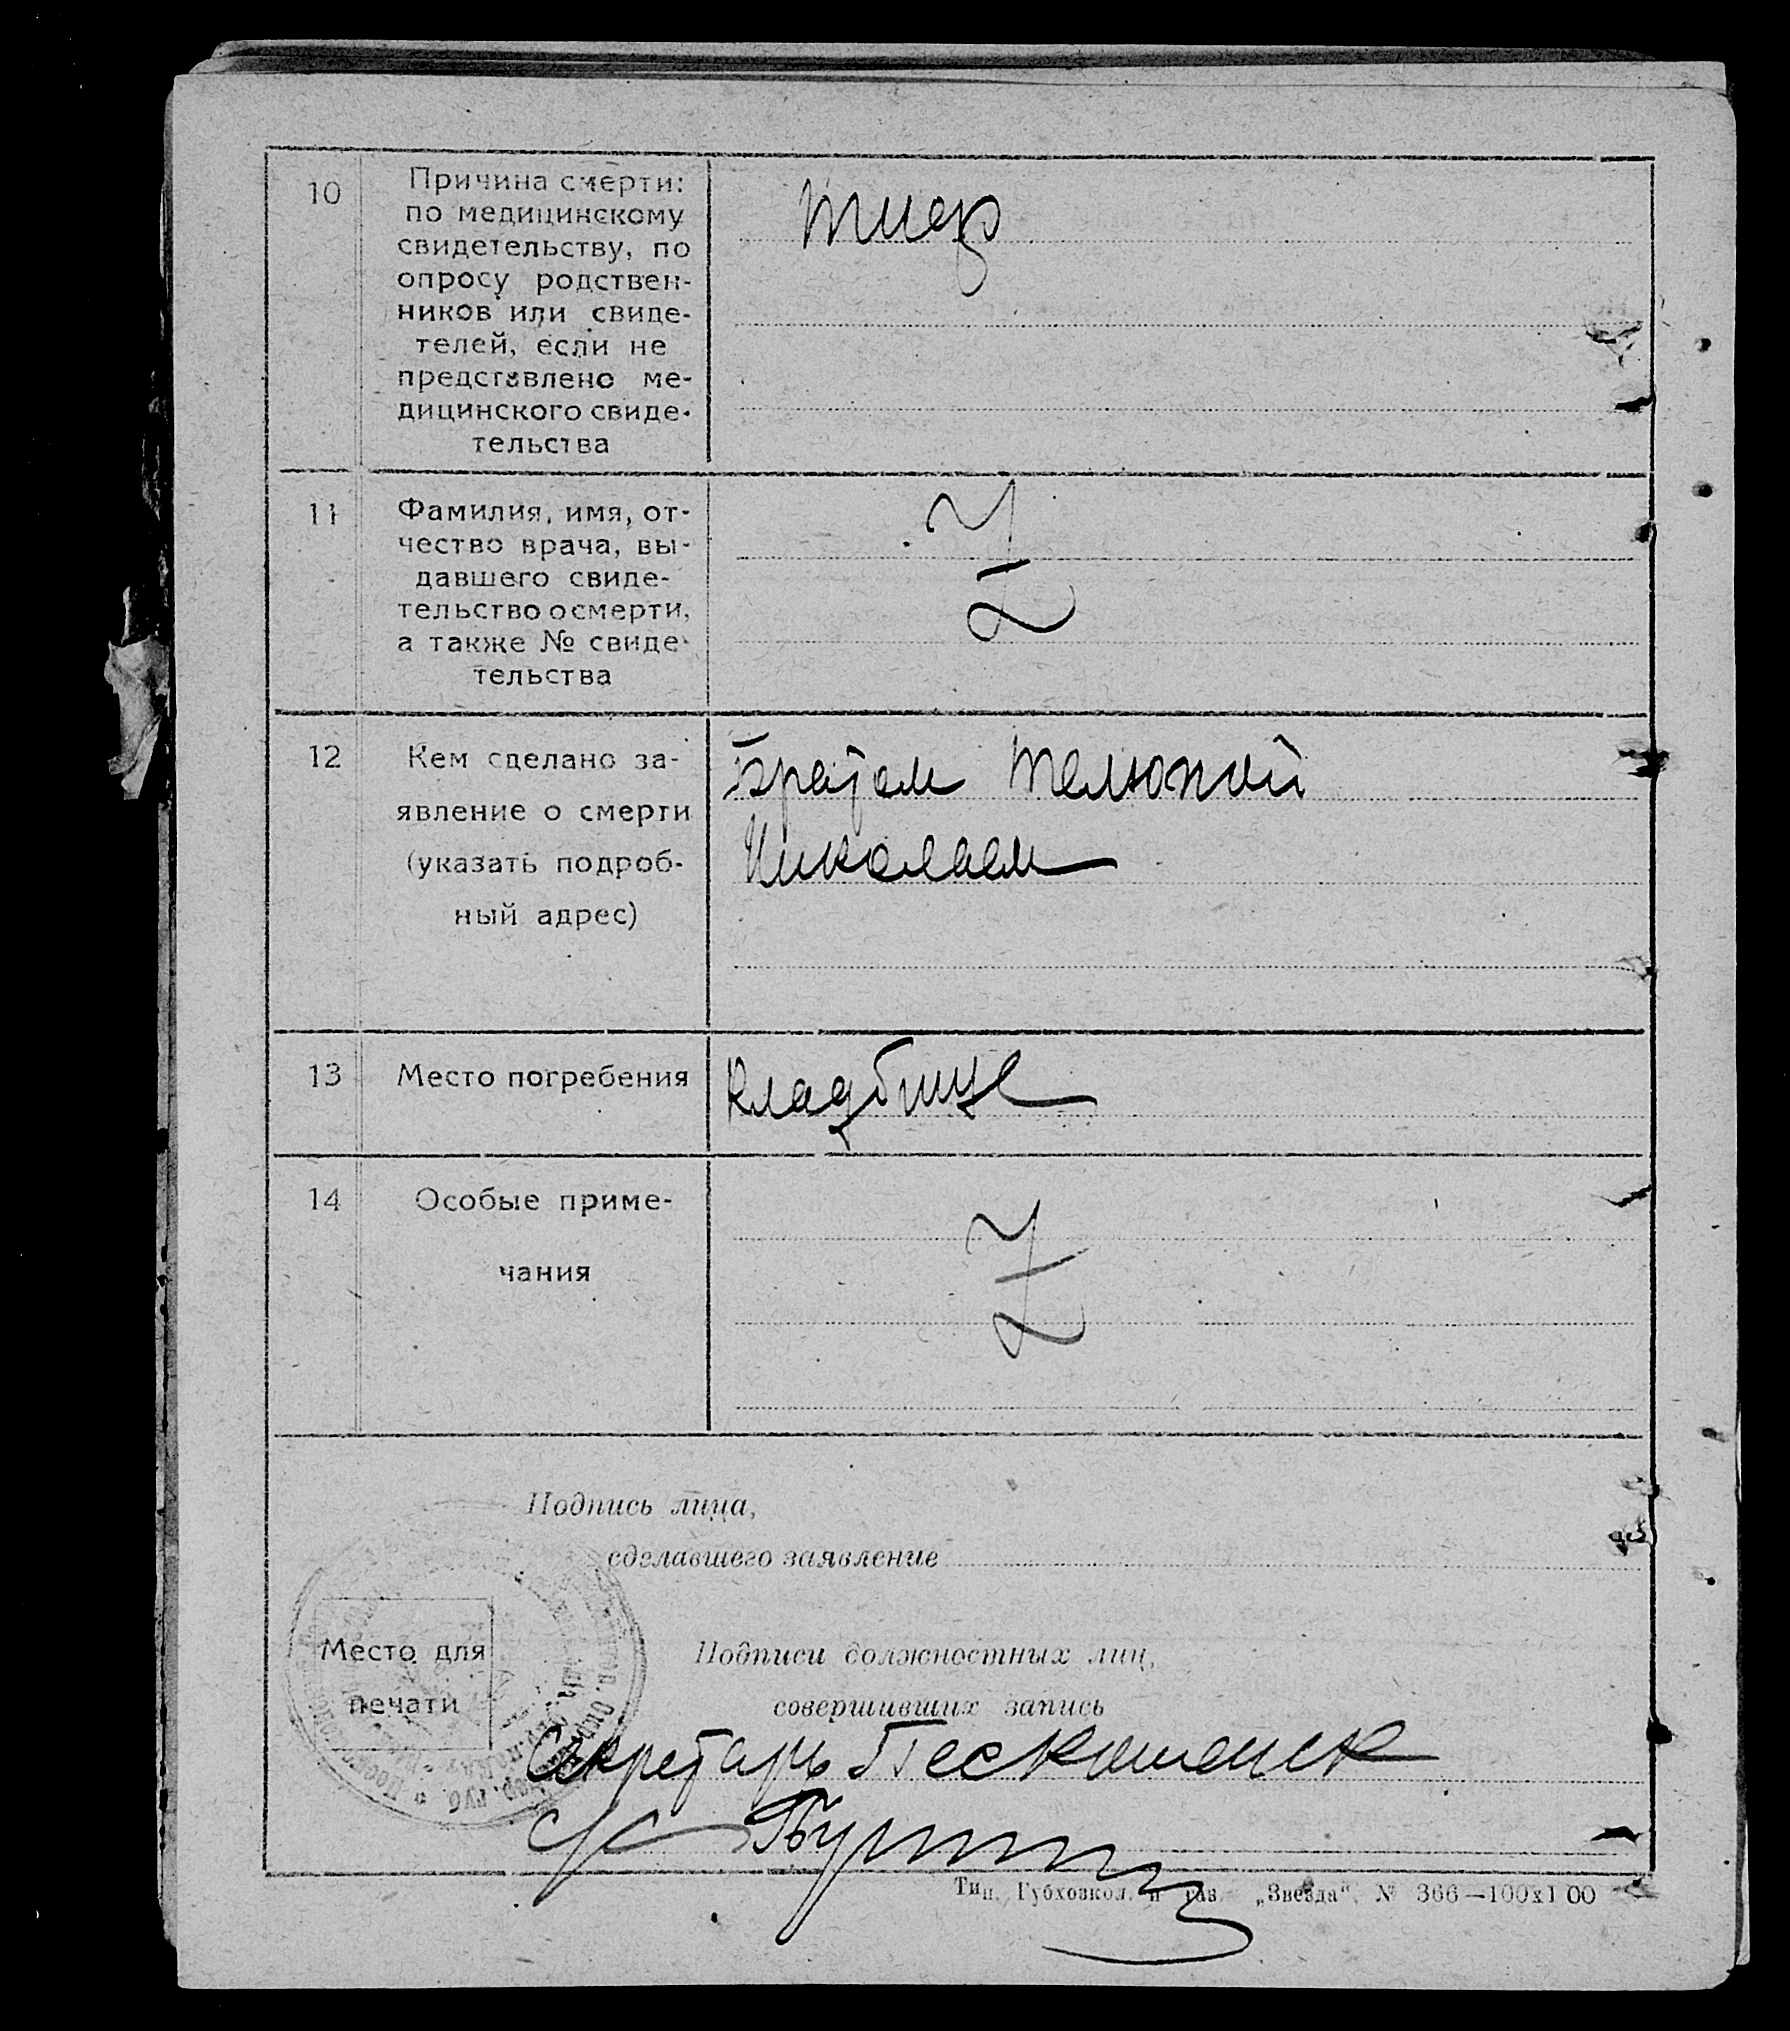 10
Причина смерти:
по медицинскому
свидетельству, по
опросу родствен-
ников или свиде-
телей, если не
представлено ме-
дицинского свиде-
тельства
тиф
11
Фамилия, имя, от-
чество врача, вы-
давшего свиде-
тельство о смерти,
а также № свиде-
тельства
Z
12
Кем сделано за-
явление о смерти
(указать подроб-
ный адрес)
Братом
Николаем
13
Место погребения
Кладбище
14
Особые приме-
чания
Z
Подпись лица,
сделавшего заявление
Место для
печати
Подписи должностных лиц,
совершивших запись
Секретарь
с/с
Тип. Губхозкол. и газ. „Звезда“. № 366—100х100